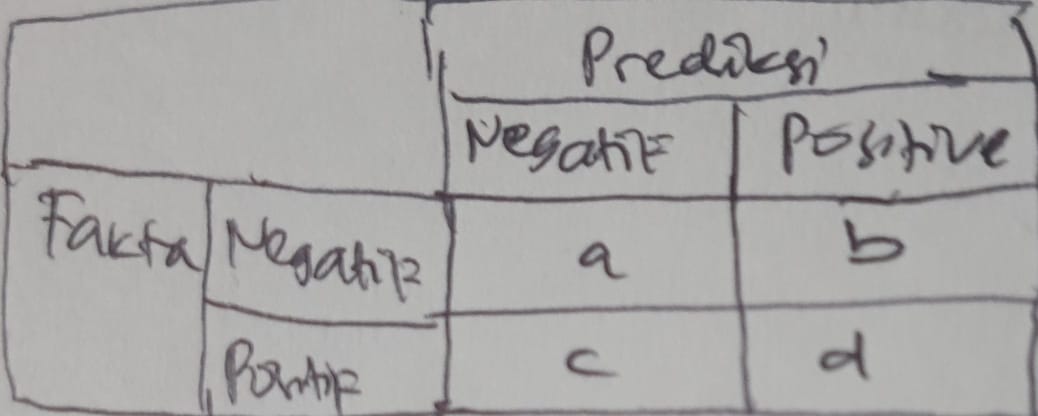 Prediksi
Negatif Positive
Fakta Negatif a b
Positif c d